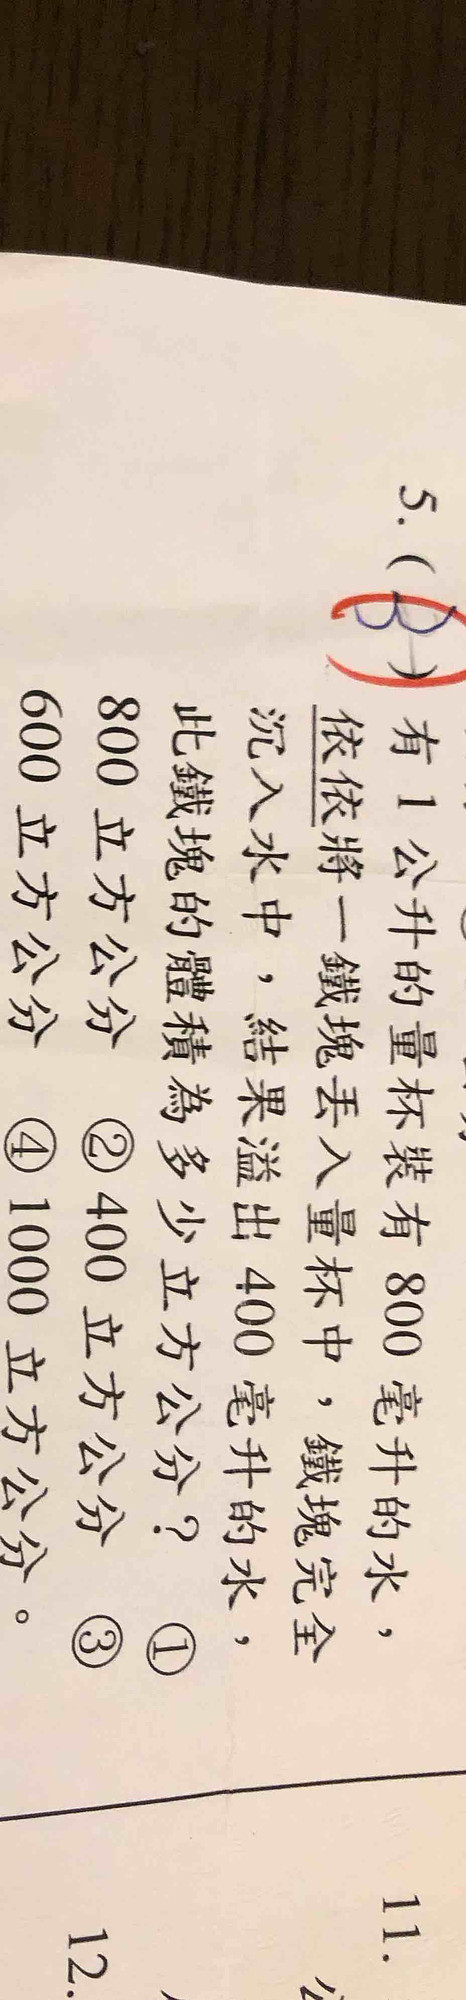 5.(B)有1公升的量杯裝有800毫升的水，
依依將一鐵塊丟入量杯中，鐵塊完全
沉入水中，結果溢出400毫升的水，
此鐵塊的體積為多少立方公分？ ①
800立方公分 ②400立方公分 ③
600立方公分 ④1000立方公分。
11.
12.